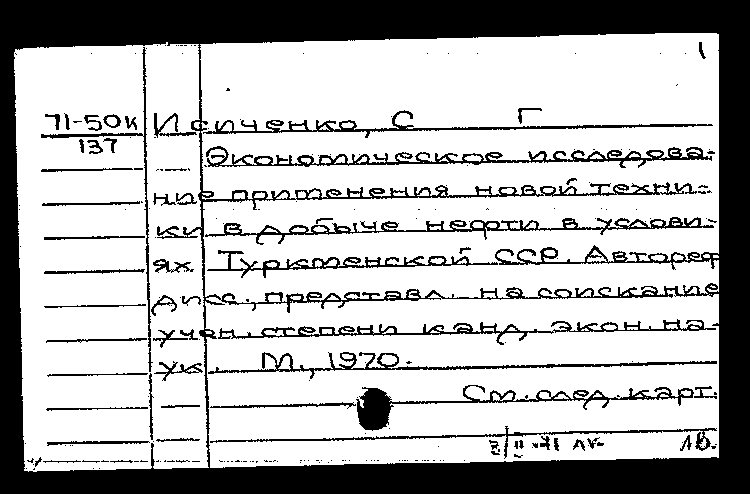 1
71-50к Исиченко, С Г
137 Экономическое исследова-
ние применения новой техни-
ки в добыче нефти в услови-
ях Туркменской ССР. Автореф
дисс., представл. на соискание
учен. степени канд. экон. на-
ук. М., 1970.
См. след. карт.